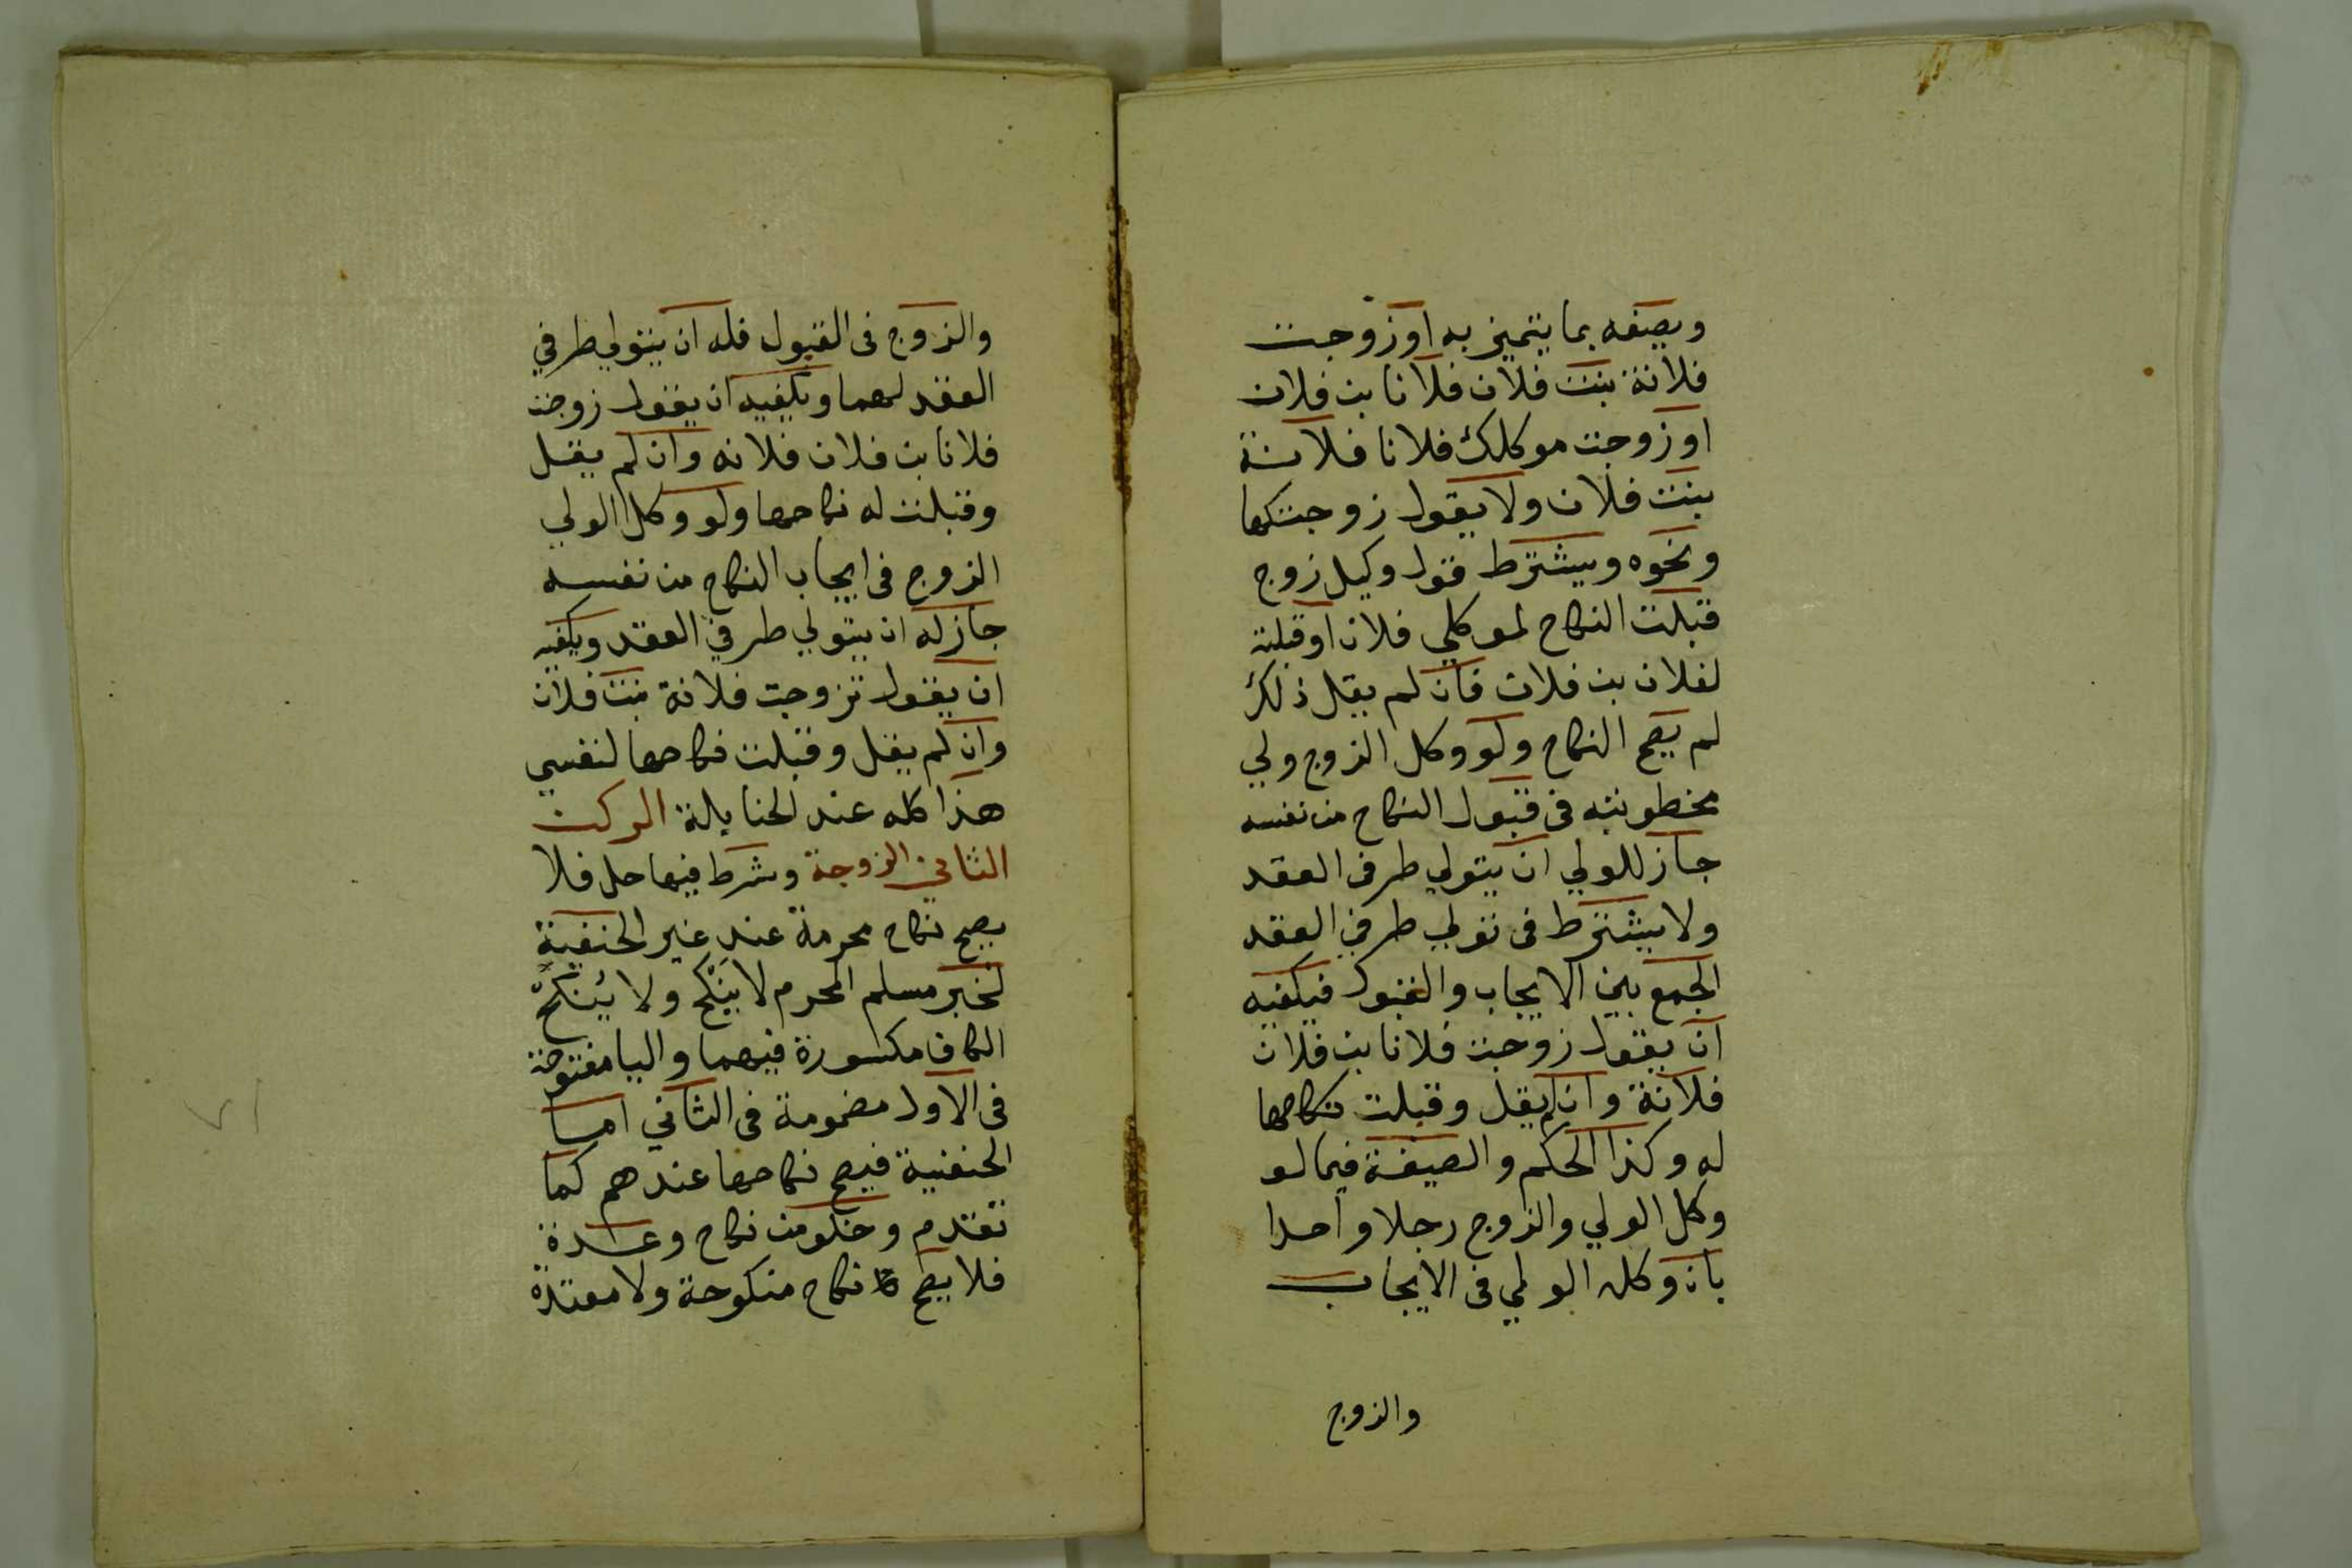 ويصفه بما يتميز به او زوجت
فلانة بنت فلان فلانا بن فلان
او زوجت موكلك فلانا فلانة
بنت فلان ولا يقول زوجتكها
ونحوه ويشترط قول وكيل زوج
قبلت النكاح لموكلي فلان او قبلته
لفلان بن فلان فان لم يقل ذلك
لم يصح النكاح ولو وكل الزوج ولي
مخطوبته في قبول النكاح من نفسه
جاز للولي ان يتولي طرفي العقد
ولا يشترط في تولي طرفي العقد
الجمع بين الايجاب والقبول فيكفيه
ان يقول زوجت فلانا بن فلان
فلانة وان لم يقل وقبلت نكاحها
له وكذا الحكم والصيغة فيما لو
وكل الولي والزوج رجلا واحدا
بان وكله الولي في الايجاب
والزوج
والزوج في القبول فله ان يتولي طرفي
العقد لهما ويكفيه ان يقول زوجت
فلانا بن فلان فلانه وان لم يقل
وقبلت له نكاحها ولو وكل الولي
الزوج في ايجاب النكاح من نفسه
جاز له ان يتولي طرفي العقد ويكفيه
ان يقول تزوجت فلانة بنت فلان
وان لم يقل وقبلت نكاحها لنفسي
هذا كله عند الحنابلة الركن
الثاني الزوجة وشرط فيها حل فلا
يصح نكاح محرمة عند غير الحنفية
لخبر مسلم المحرم لا يَنْكِح ولا يُنكِحُ
الكاف مكسورة فيهما واليا مفتوحة
في الاول مضمومة في الثاني اما
الحنفية فيصح نكاحها عندهم كما
تقدم وخلو من نكاح وعدة
فلا يصح نكاح منكوحة ولا معتدة